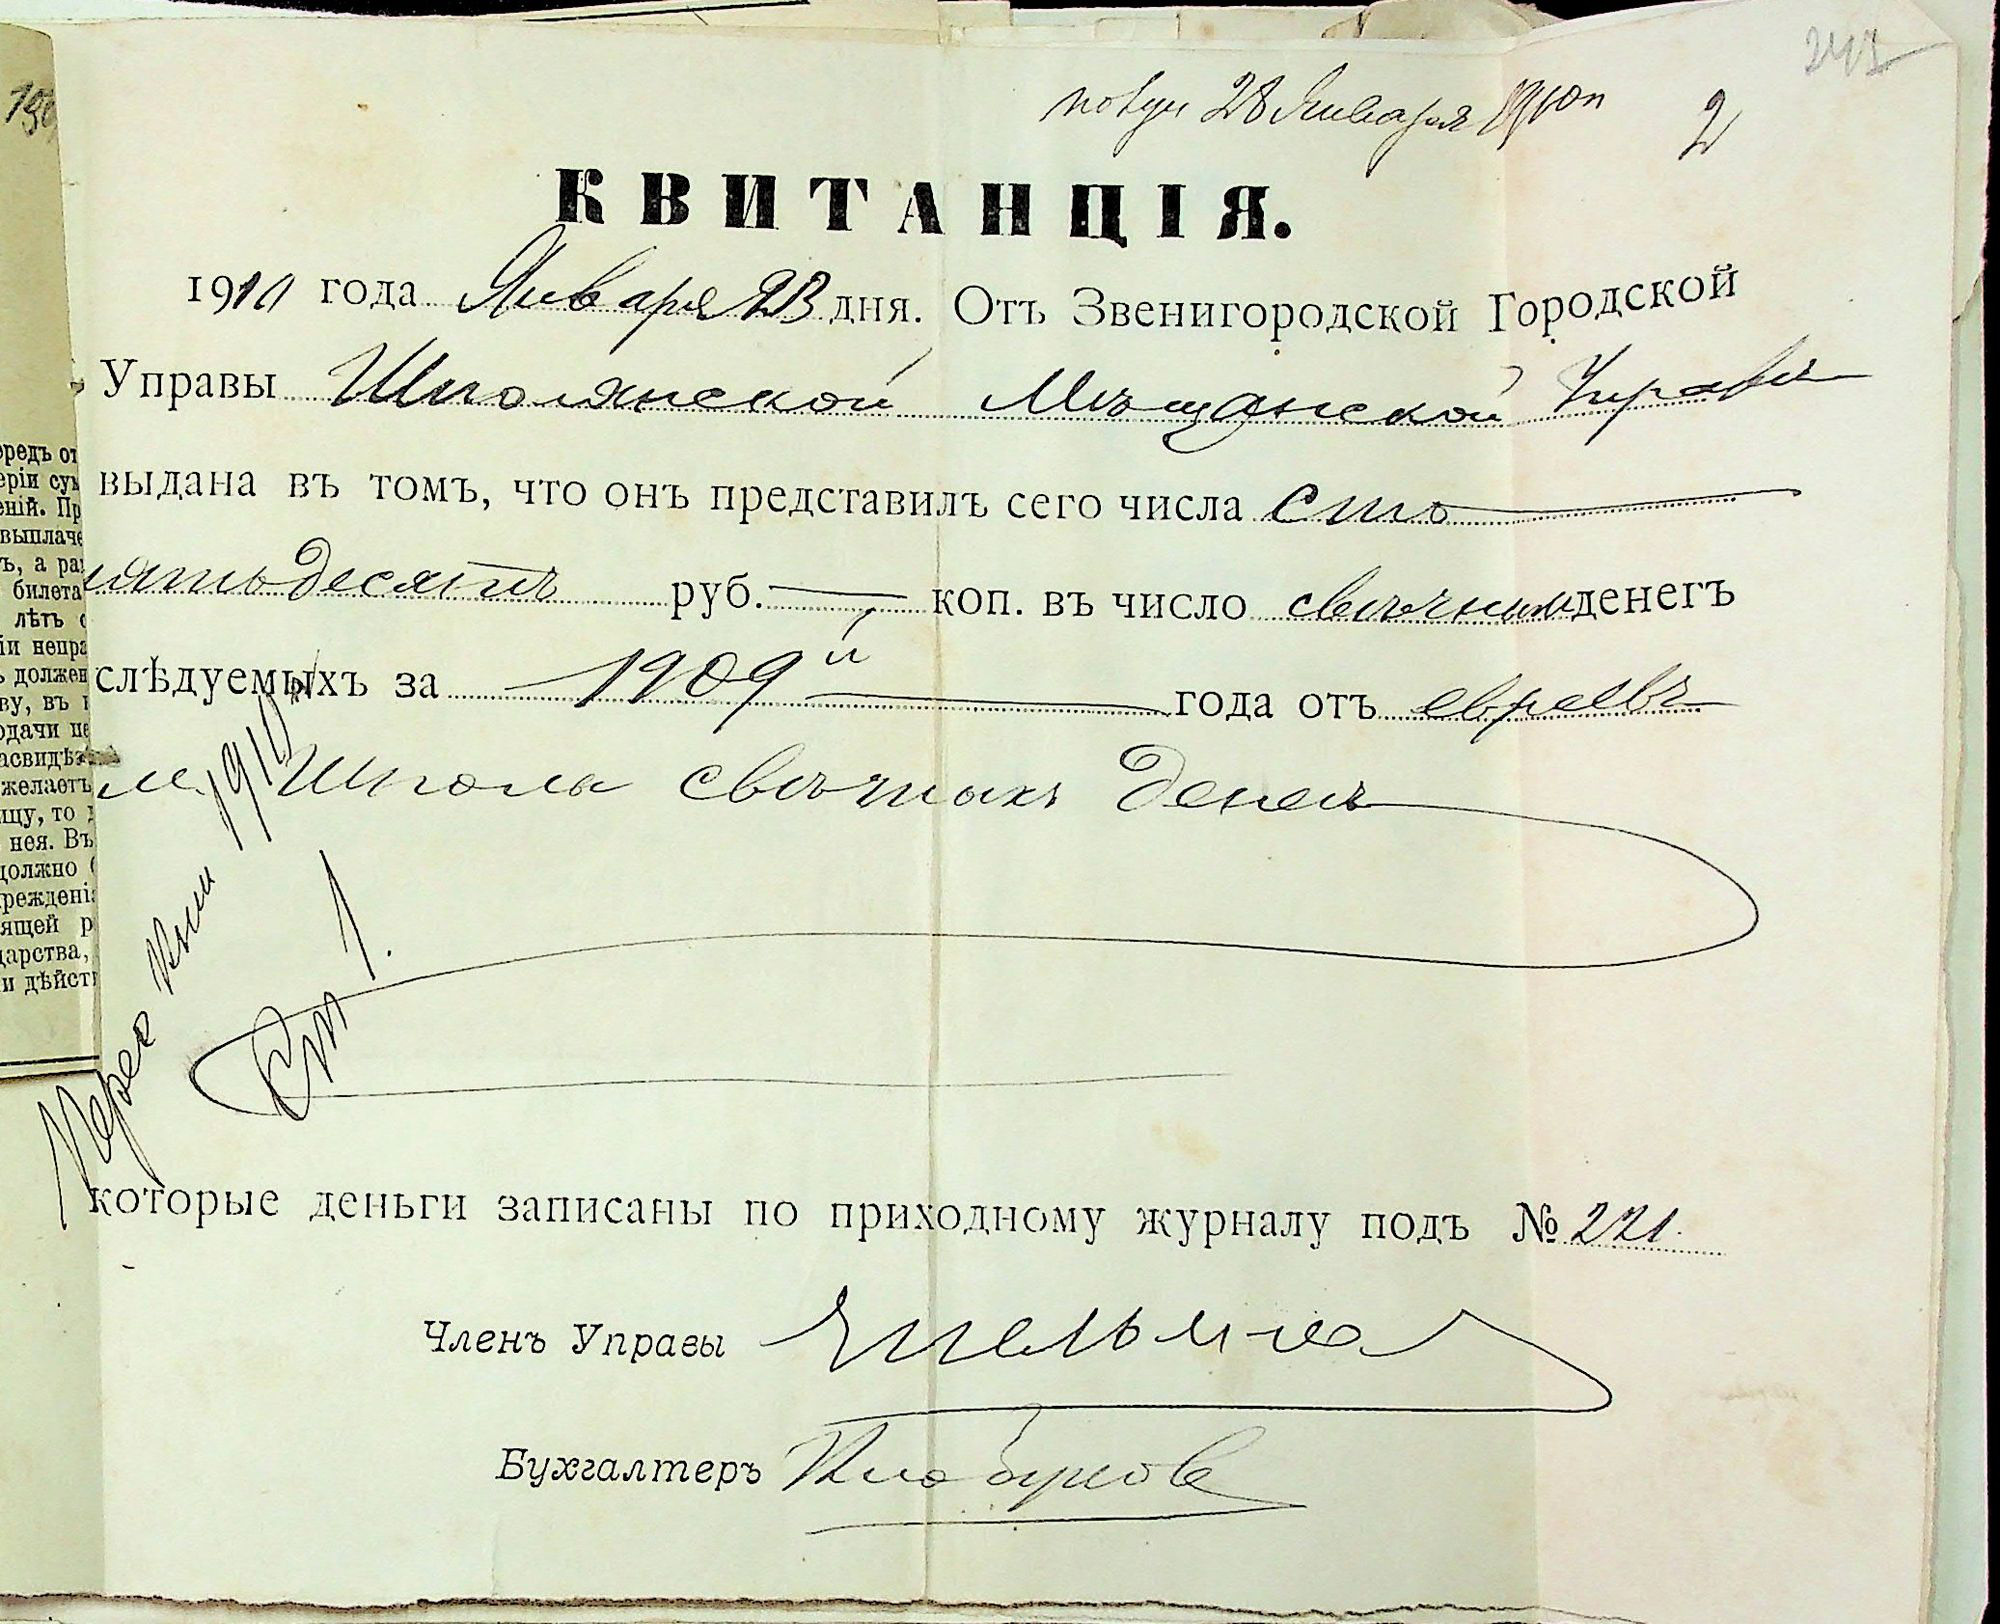 241
2
получ 28 Января 1910 г
КВИТАНЦІЯ.
1910 года Января 23 дня. Отъ Звенигородской Городской
Управы Шполянской Мѣщанской Управѣ
выдана въ томъ, что онъ представилъ сего числа сто
пятьдесятъ руб. — коп. въ число свѣчныхъ денегъ
слѣдуемыхъ за 1909 й года отъ евреевъ
м. Шполы свѣчныхъ денегъ
1910
Ст 1.
которые деньги записаны по приходному журналу подъ № 221.
Членъ Управы
Бухгалтеръ
ередъ от
еріи сум
еній. Пр
выплаче
ъ, а раз
билета
лѣтъ с
іи непра
ь должен
ву, въ
одачи пе
асвидѣ
желаетъ
ицу, то
нея. Въ
должно
режденіа
ящей р
дарства,
и дѣйст